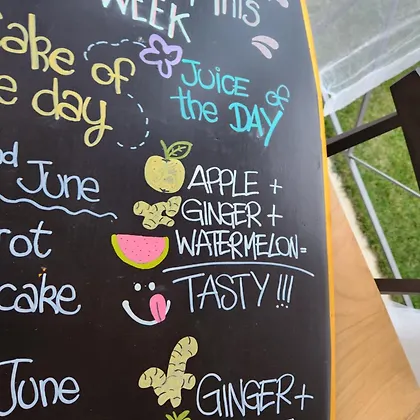 WEEK
THIS
Cake of
the day
JUICE of
the DAY
June
APPLE +
GINGER +
WATERMELON=
cake
TASTY !!!
June
GINGER+